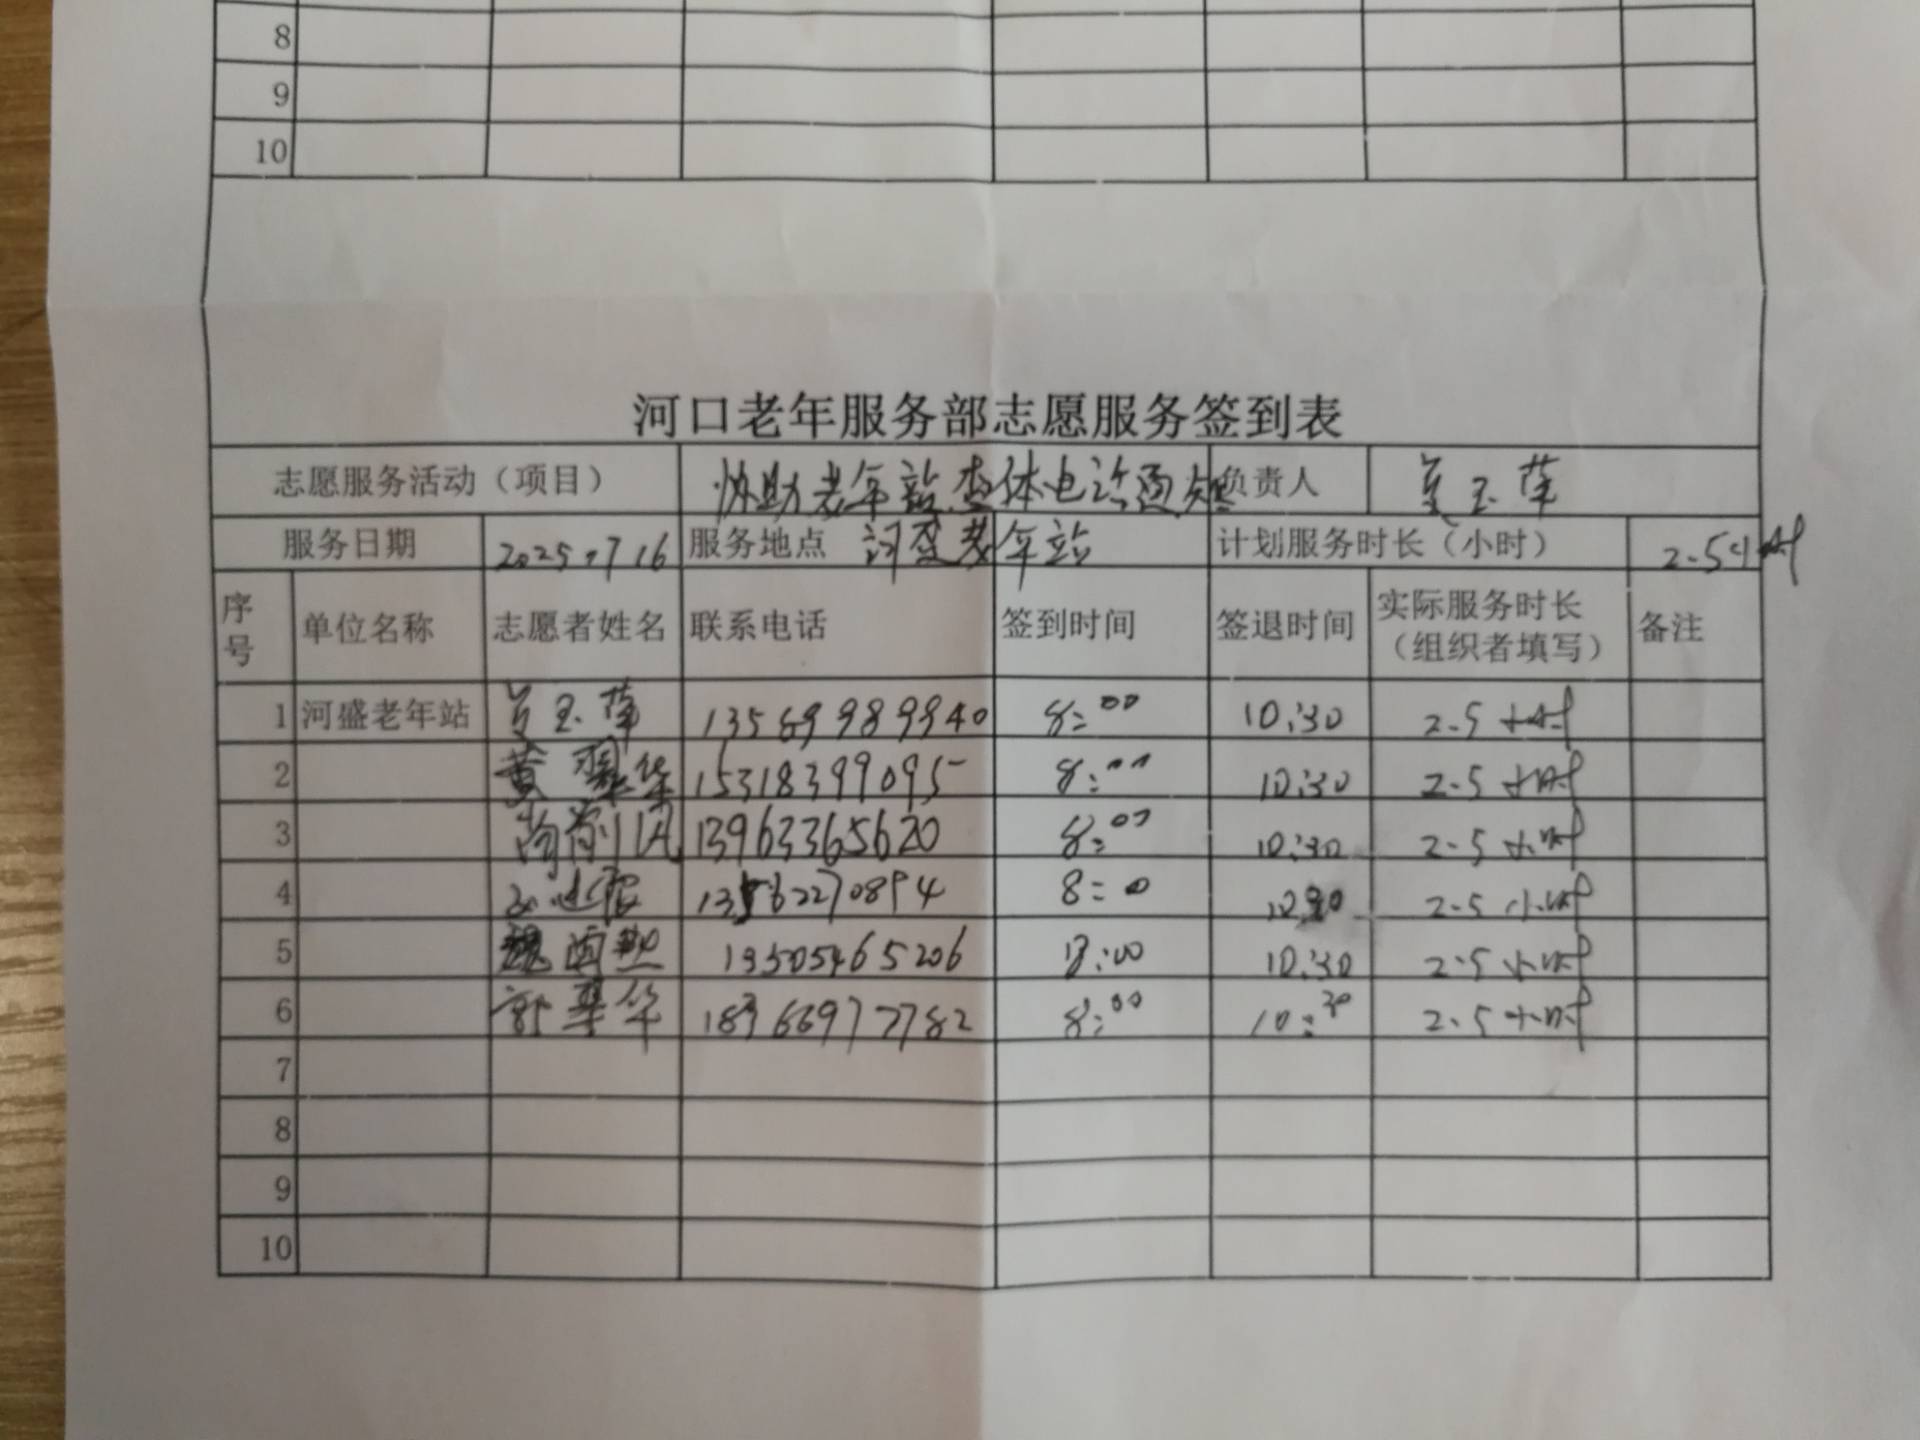 8
9
10
河口老年服务部志愿服务签到表
志愿服务活动（项目） 协助老年站查体电话通知 负责人 玉萍
服务日期 2025.7 16 服务地点 河盛老年站 计划服务时长（小时） 2.5小时
序号 单位名称 志愿者姓名 联系电话 签到时间 签退时间 实际服务时长（组织者填写） 备注
1 河盛老年站 玉萍 13589989940 8:00 10:30 2.5小时
2 黄翠华 15318399095 8:00 10:30 2.5小时
3 13963365620 8:00 10:30 2.5小时
4 8:0 10:30 2.5小时
5 13505465206 8:00 10:30 2.5小时
6 郭翠华 18366977782 8:00 10:30 2.5小时
7
8
9
10